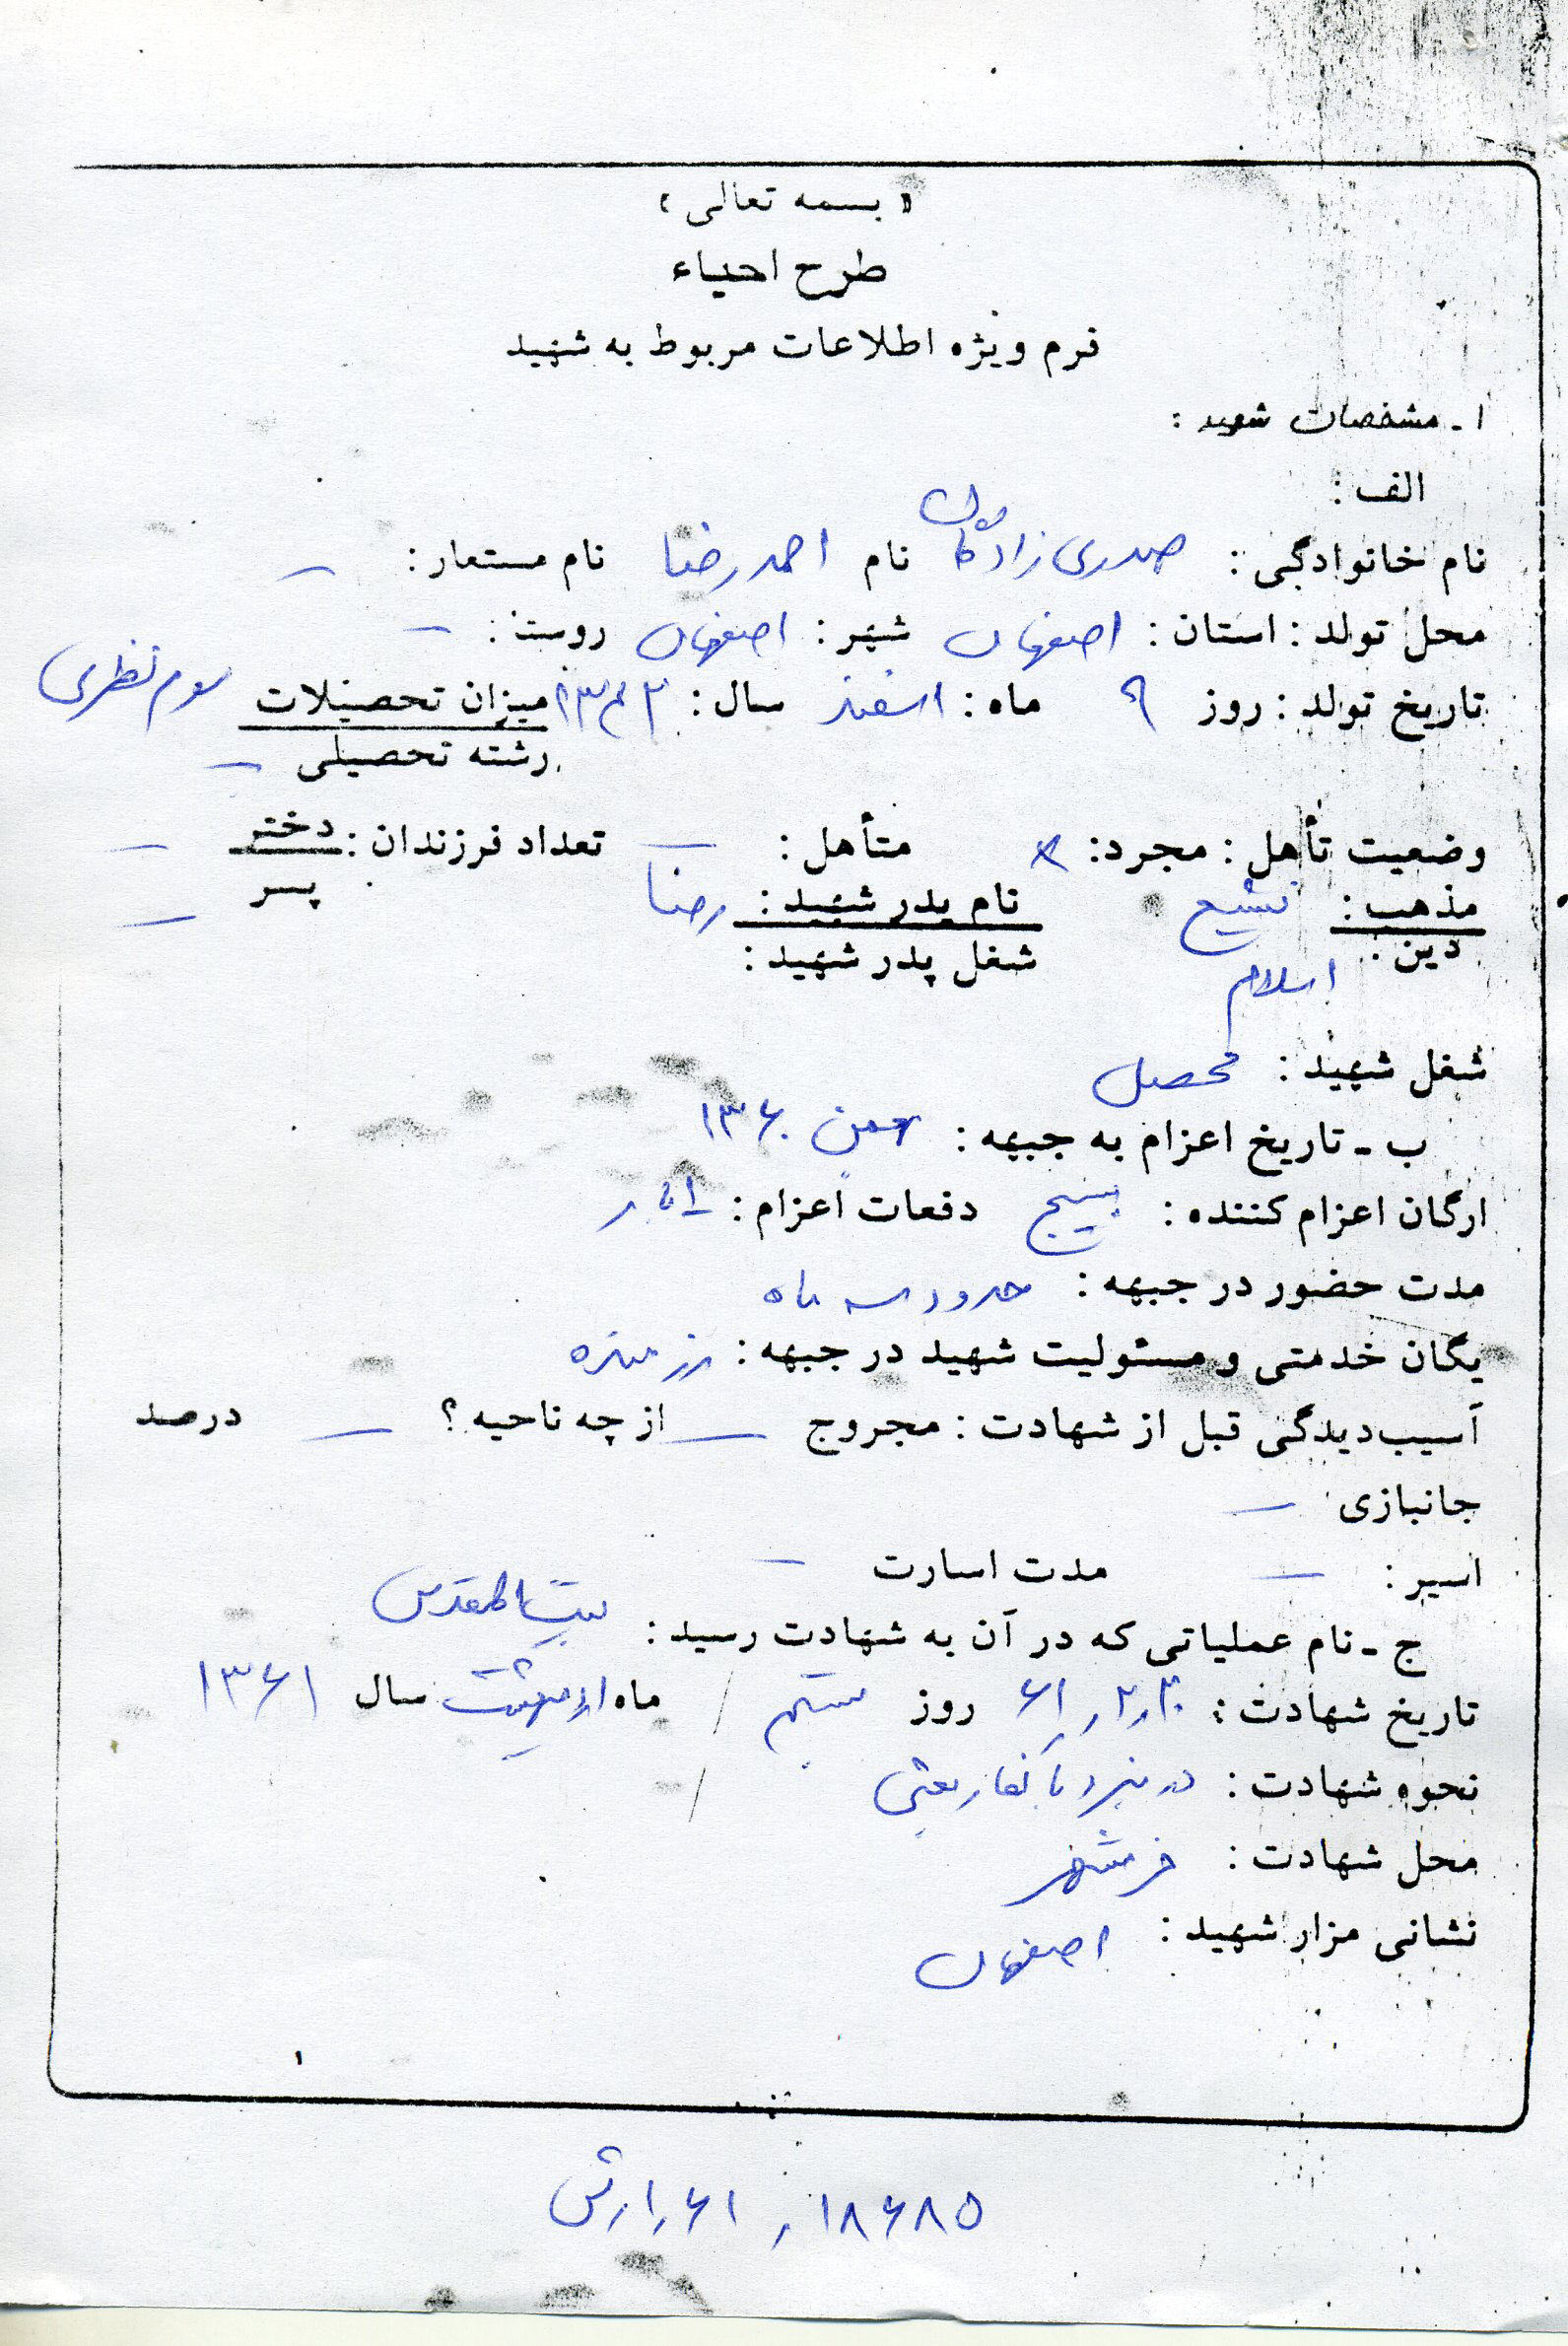 « بسمه تعالی »
طرح احیاء
فرم ویژه اطلاعات مربوط به شهید
۱ـ مشخصات شهید :
الف :
نام خانوادگی : صدری زادگان نام احمدرضا نام مستعار : ـ
محل تولد : استان : اصفهان شهر : اصفهان روستا : ـ
تاریخ تولد : روز ۹ ماه : اسفند سال : ۱۳۴۲ میزان تحصیلات سوم نظری
رشته تحصیلی ـ
وضعیت تأهل : مجرد : × متأهل : ـ تعداد فرزندان : دختر ـ
پسر ـ
مذهب : تشیع نام پدر شهید : رضا
دین : اسلام شغل پدر شهید :
شغل شهید : محصل
ب ـ تاریخ اعزام به جبهه : بهمن ۱۳۶۰
ارگان اعزام کننده : بسیج دفعات اعزام :
مدت حضور در جبهه : حدود سه ماه
یگان خدمتی و مسئولیت شهید در جبهه : رزمنده
آسیب‌دیدگی قبل از شهادت : مجروح ـ از چه ناحیه ؟ ـ درصد
جانبازی ـ
اسیر : ـ مدت اسارت ـ
ج ـ نام عملیاتی که در آن به شهادت رسید : بیت المقدس
تاریخ شهادت : ۶۱٫۲٫۲۰ روز بیستم / ماه اردیبهشت سال ۱۳۶۱
نحوه شهادت : در نبرد با کفار بعثی /
محل شهادت : خرمشهر
نشانی مزار شهید : اصفهان
۱
۱۸۶۸۵ , ۶۱